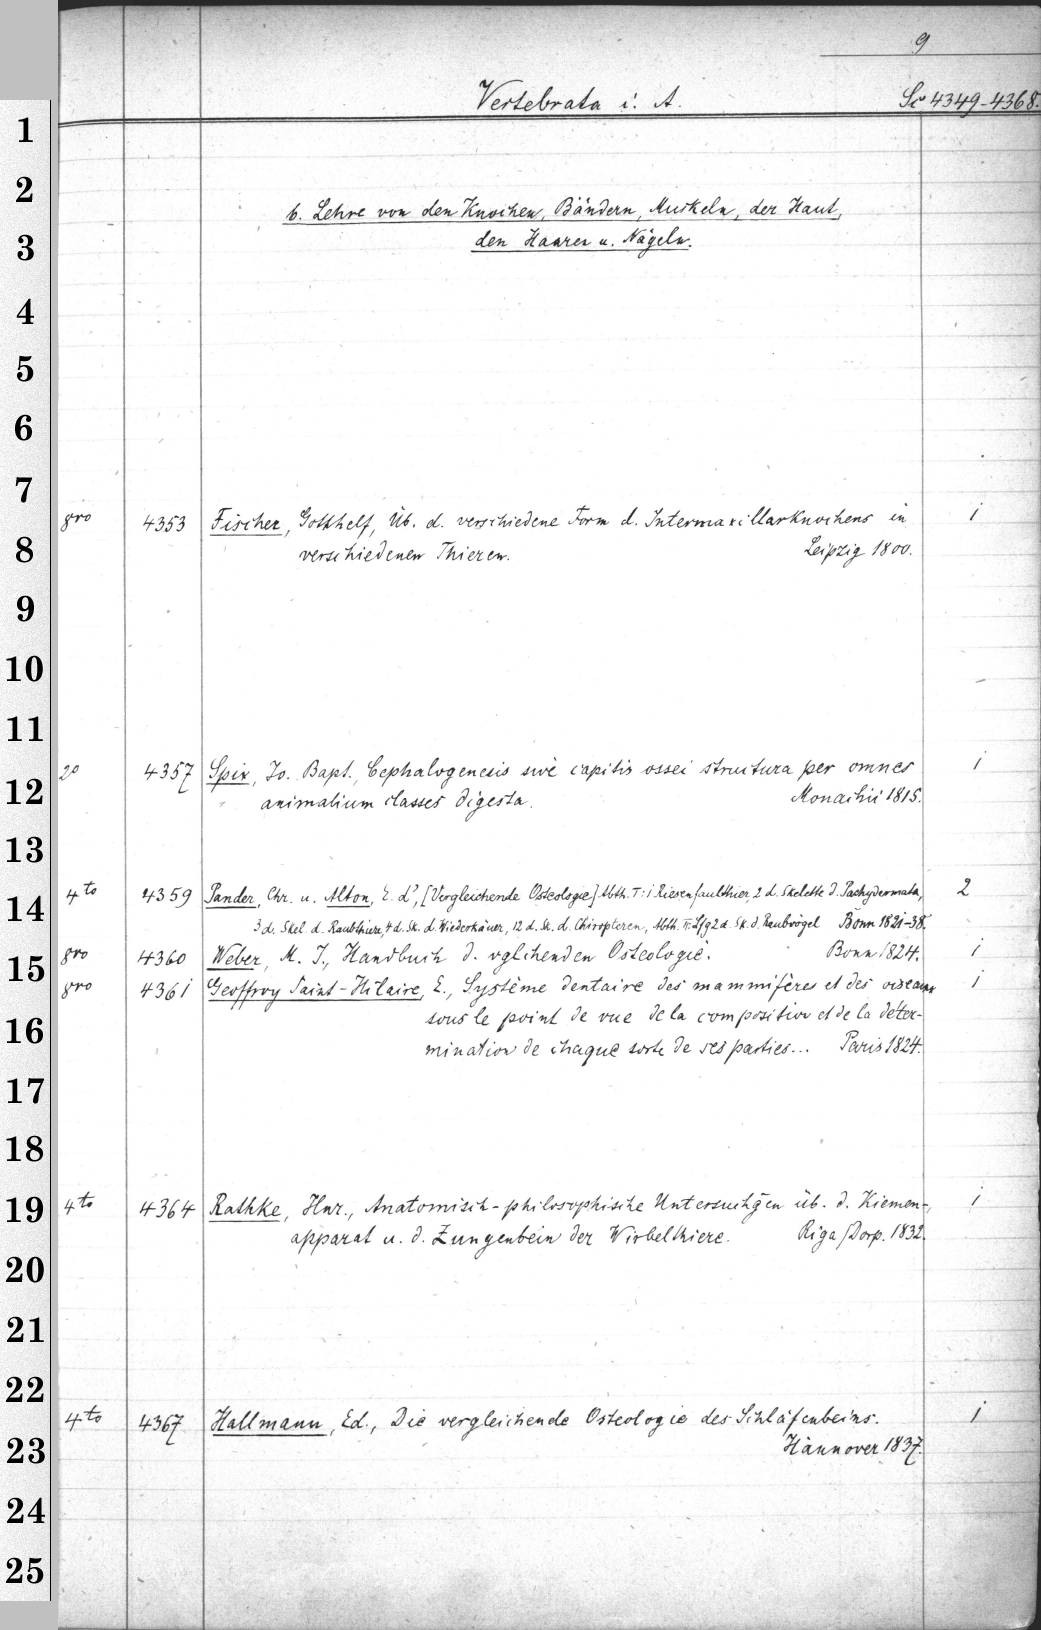 9
Vertebrata i. A. Si 4349-4368.
1
2
b. Lehre von den Knochen, Bändern, Muskeln, der Haut,
3
den Haaren u. Nägeln.
4
5
6
7
8vo 4353 Fischer, Gotthelf, Üb. d. verschiedene Form d. Intermaxillarknochens in 1
8
verschiedenen Thieren. Leipzig 1800.
9
10
11
2o 4357 Spix, Jo. Bapt., Cephalogenesis sive capitis ossei structura per omnes 1
12
animalium classes digesta. Monachii 1815.
13
4to 4359 Pander, Chr. u. Alton, E. d', [Vergleichende Osteologie] Abth. I: 1 Riesenfaulthier, 2 d. Skelette d. Pachydermata, 2
14
3 d. Skel d. Raubthiere, 4 d. Sk. d. Wiederkäuer, 12 d. Sk. d. Chiropteren, Abth. II Lfg 2 d. Sk. d. Raubvögel Bonn 1821-38.
15
8vo 4360 Weber, M. J., Handbuch d. vglchenden Osteologie. Bonn 1824. 1
8vo 4361 Geoffroy Saint-Hilaire, E., Système dentaire des mammifères et des oiseaux 1
16
sous le point de vue de la composition et de la déter-
mination de chaque sorte de ses parties... Paris 1824.
17
18
19
4to 4364 Rathke, Hnr., Anatomisch-philosophische Untersuchgen üb. d. Kiemen- 1
apparat u. d. Zungenbein der Wirbelthiere. Riga/Dorp. 1832.
20
21
22
4to 4367 Hallmann, Ed., Die vergleichende Osteologie des Schläfenbeins. 1
23
Hannover 1837.
24
25